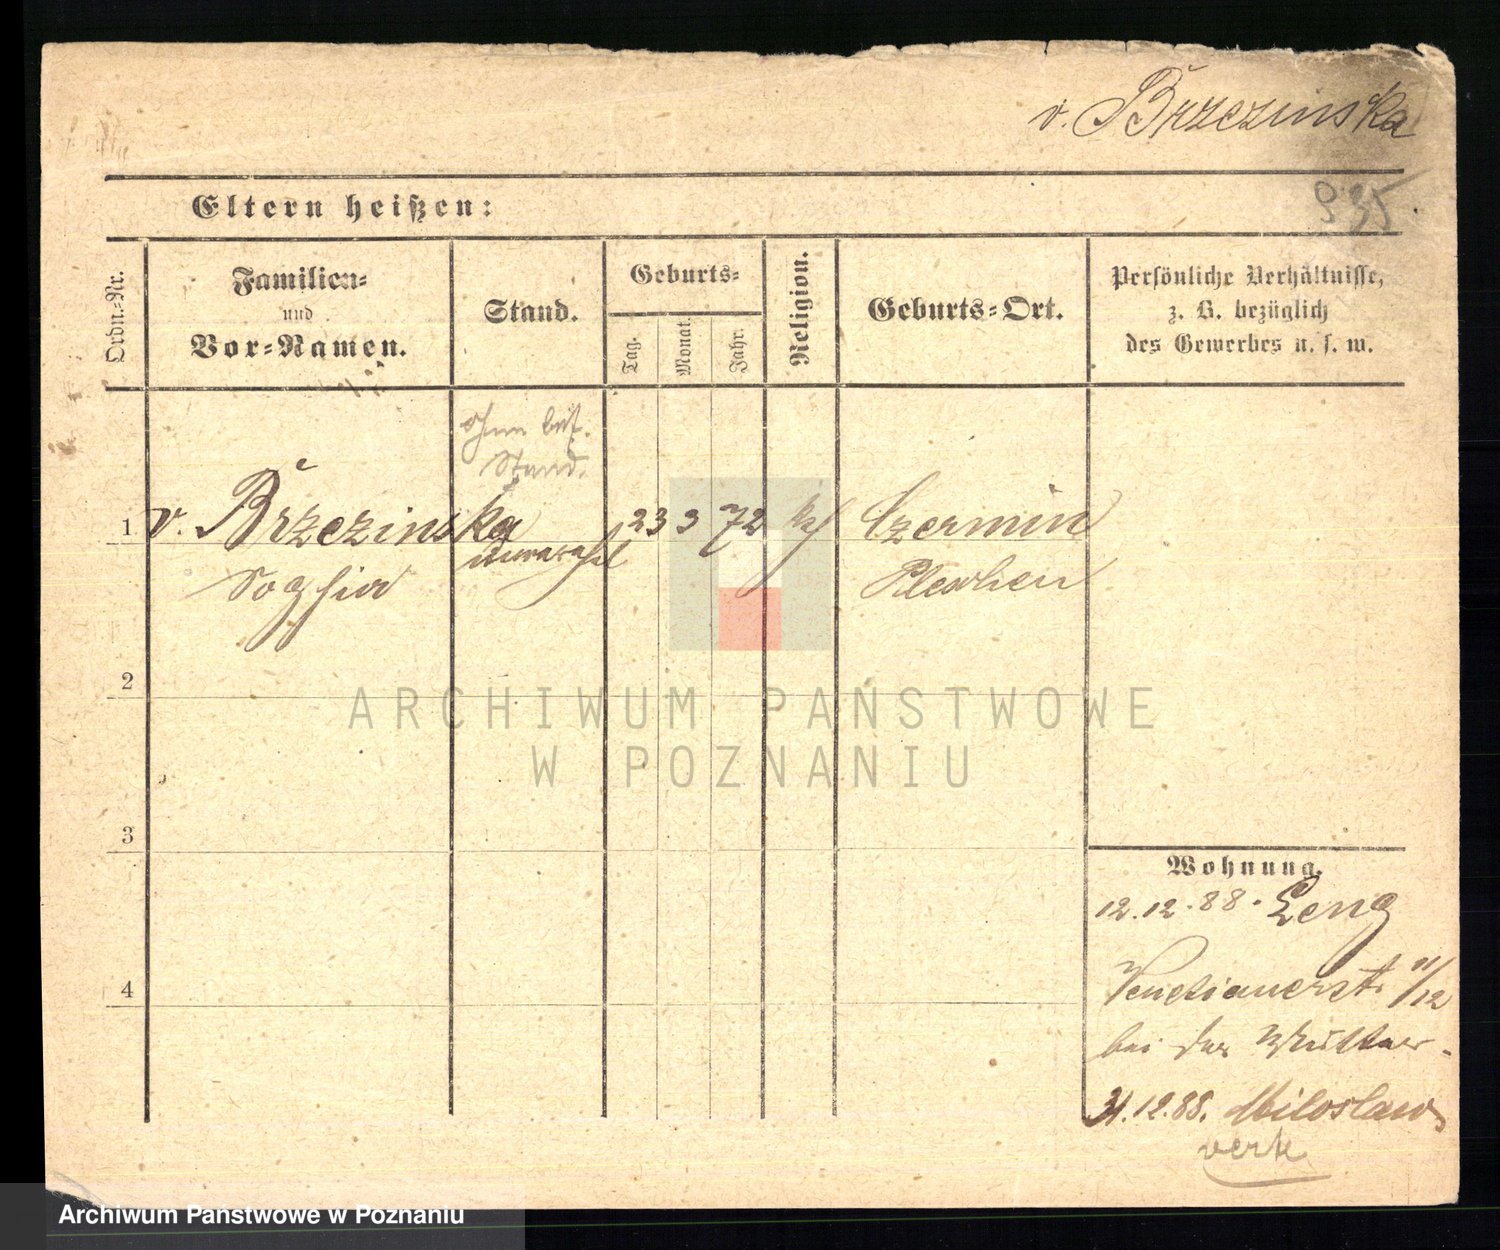 v. Brzezinska
935.
Eltern heißen:
Ordn.-Nr.
Familien-
und
Vor-Namen.
Stand.
Geburts-
Tag.
Monat.
Jahr.
Religion.
Geburts-Ort.
Persönliche Verhältnisse,
z. B. bezüglich
des Gewerbes u. s. w.
ohne bes.
Stand.
1 v. Brzezinska 23 3 72 Czermin
Sophia Pleschen
2
3
4
Wohnung.
12.12.88. Leng
Venetianerst. 11/12
bei der Mutter.
31.12.88. Miloslaw
verte
ARCHIWUM PAŃSTWOWE
W POZNANIU
Archiwum Państwowe w Poznaniu